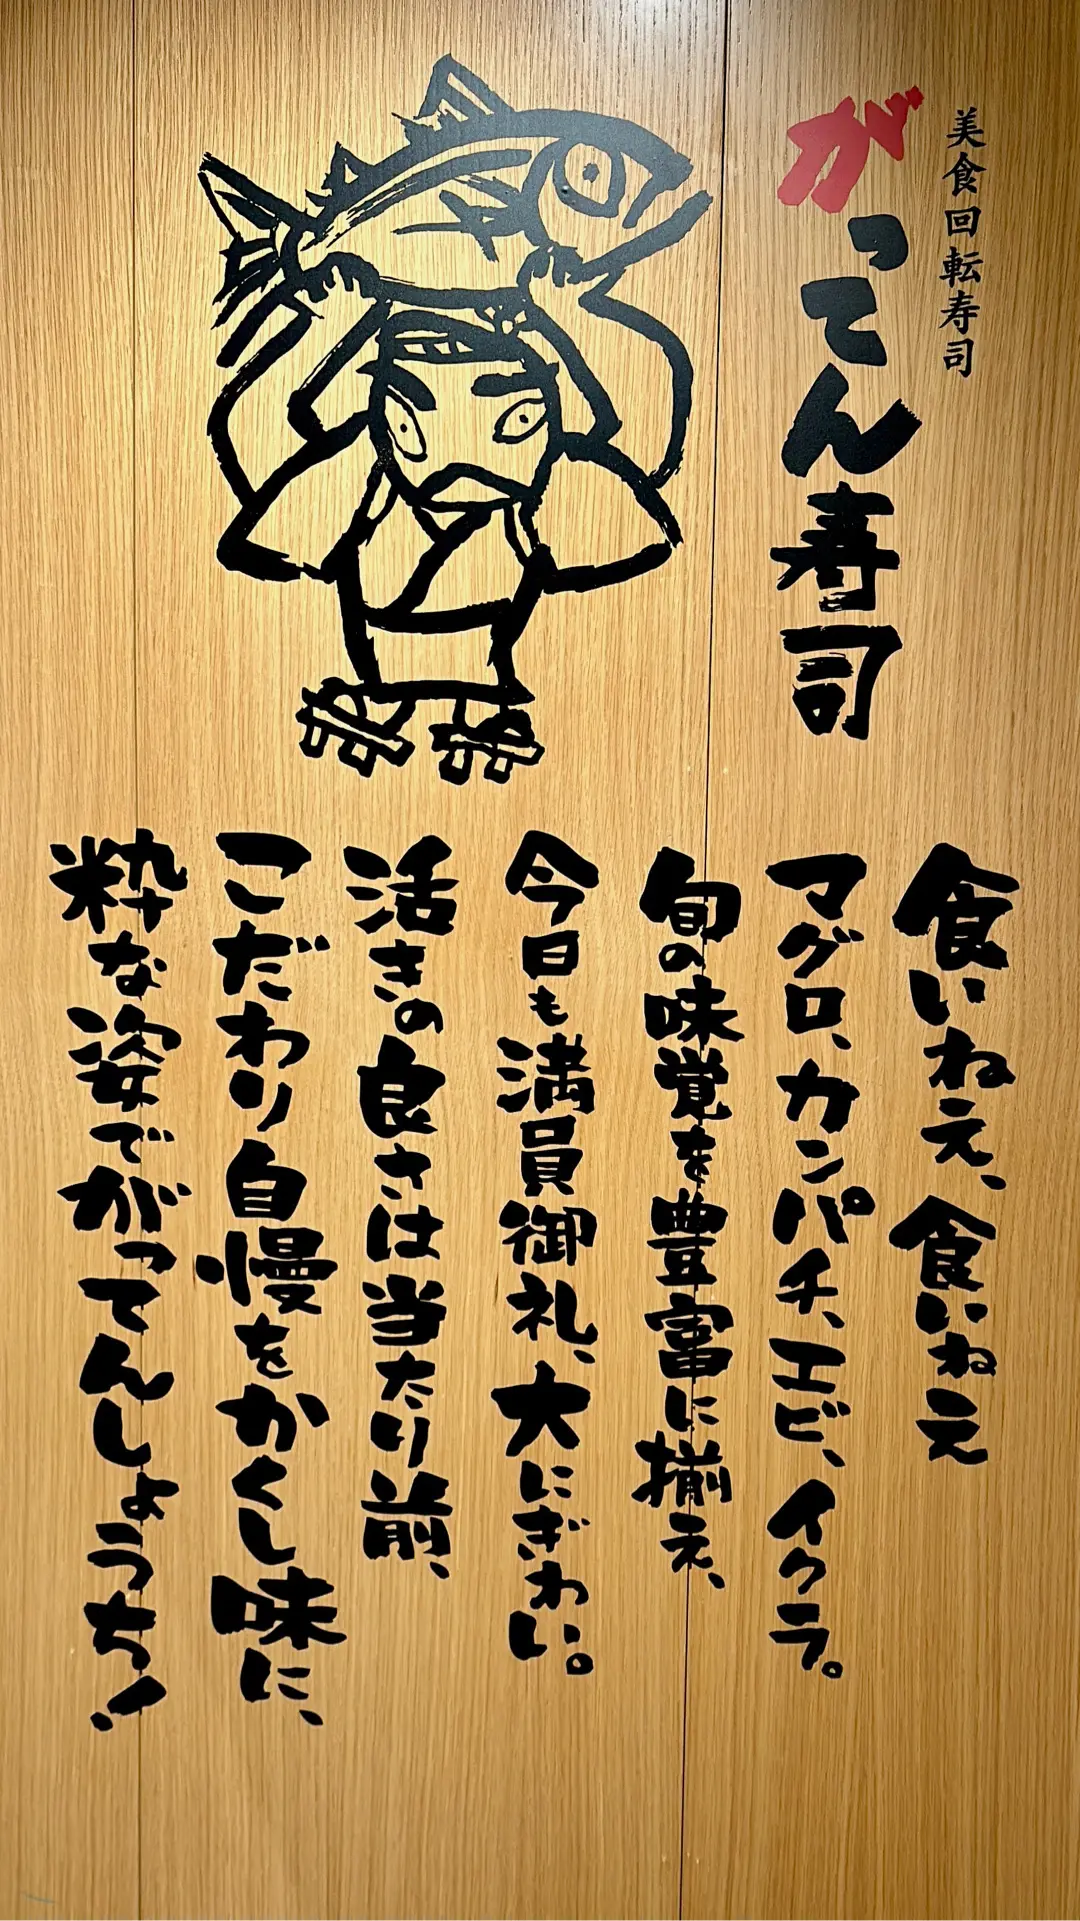 美食回転寿司
がってん寿司
食いねえ、食いねえ
マグロ、カンパチ、エビ、イクラ。
旬の味覚を豊富に揃え、
今日も満員御礼、大にぎわい。
活きの良さは当たり前、
こだわり自慢をかくし味に、
粋な姿でがってんしょうち!